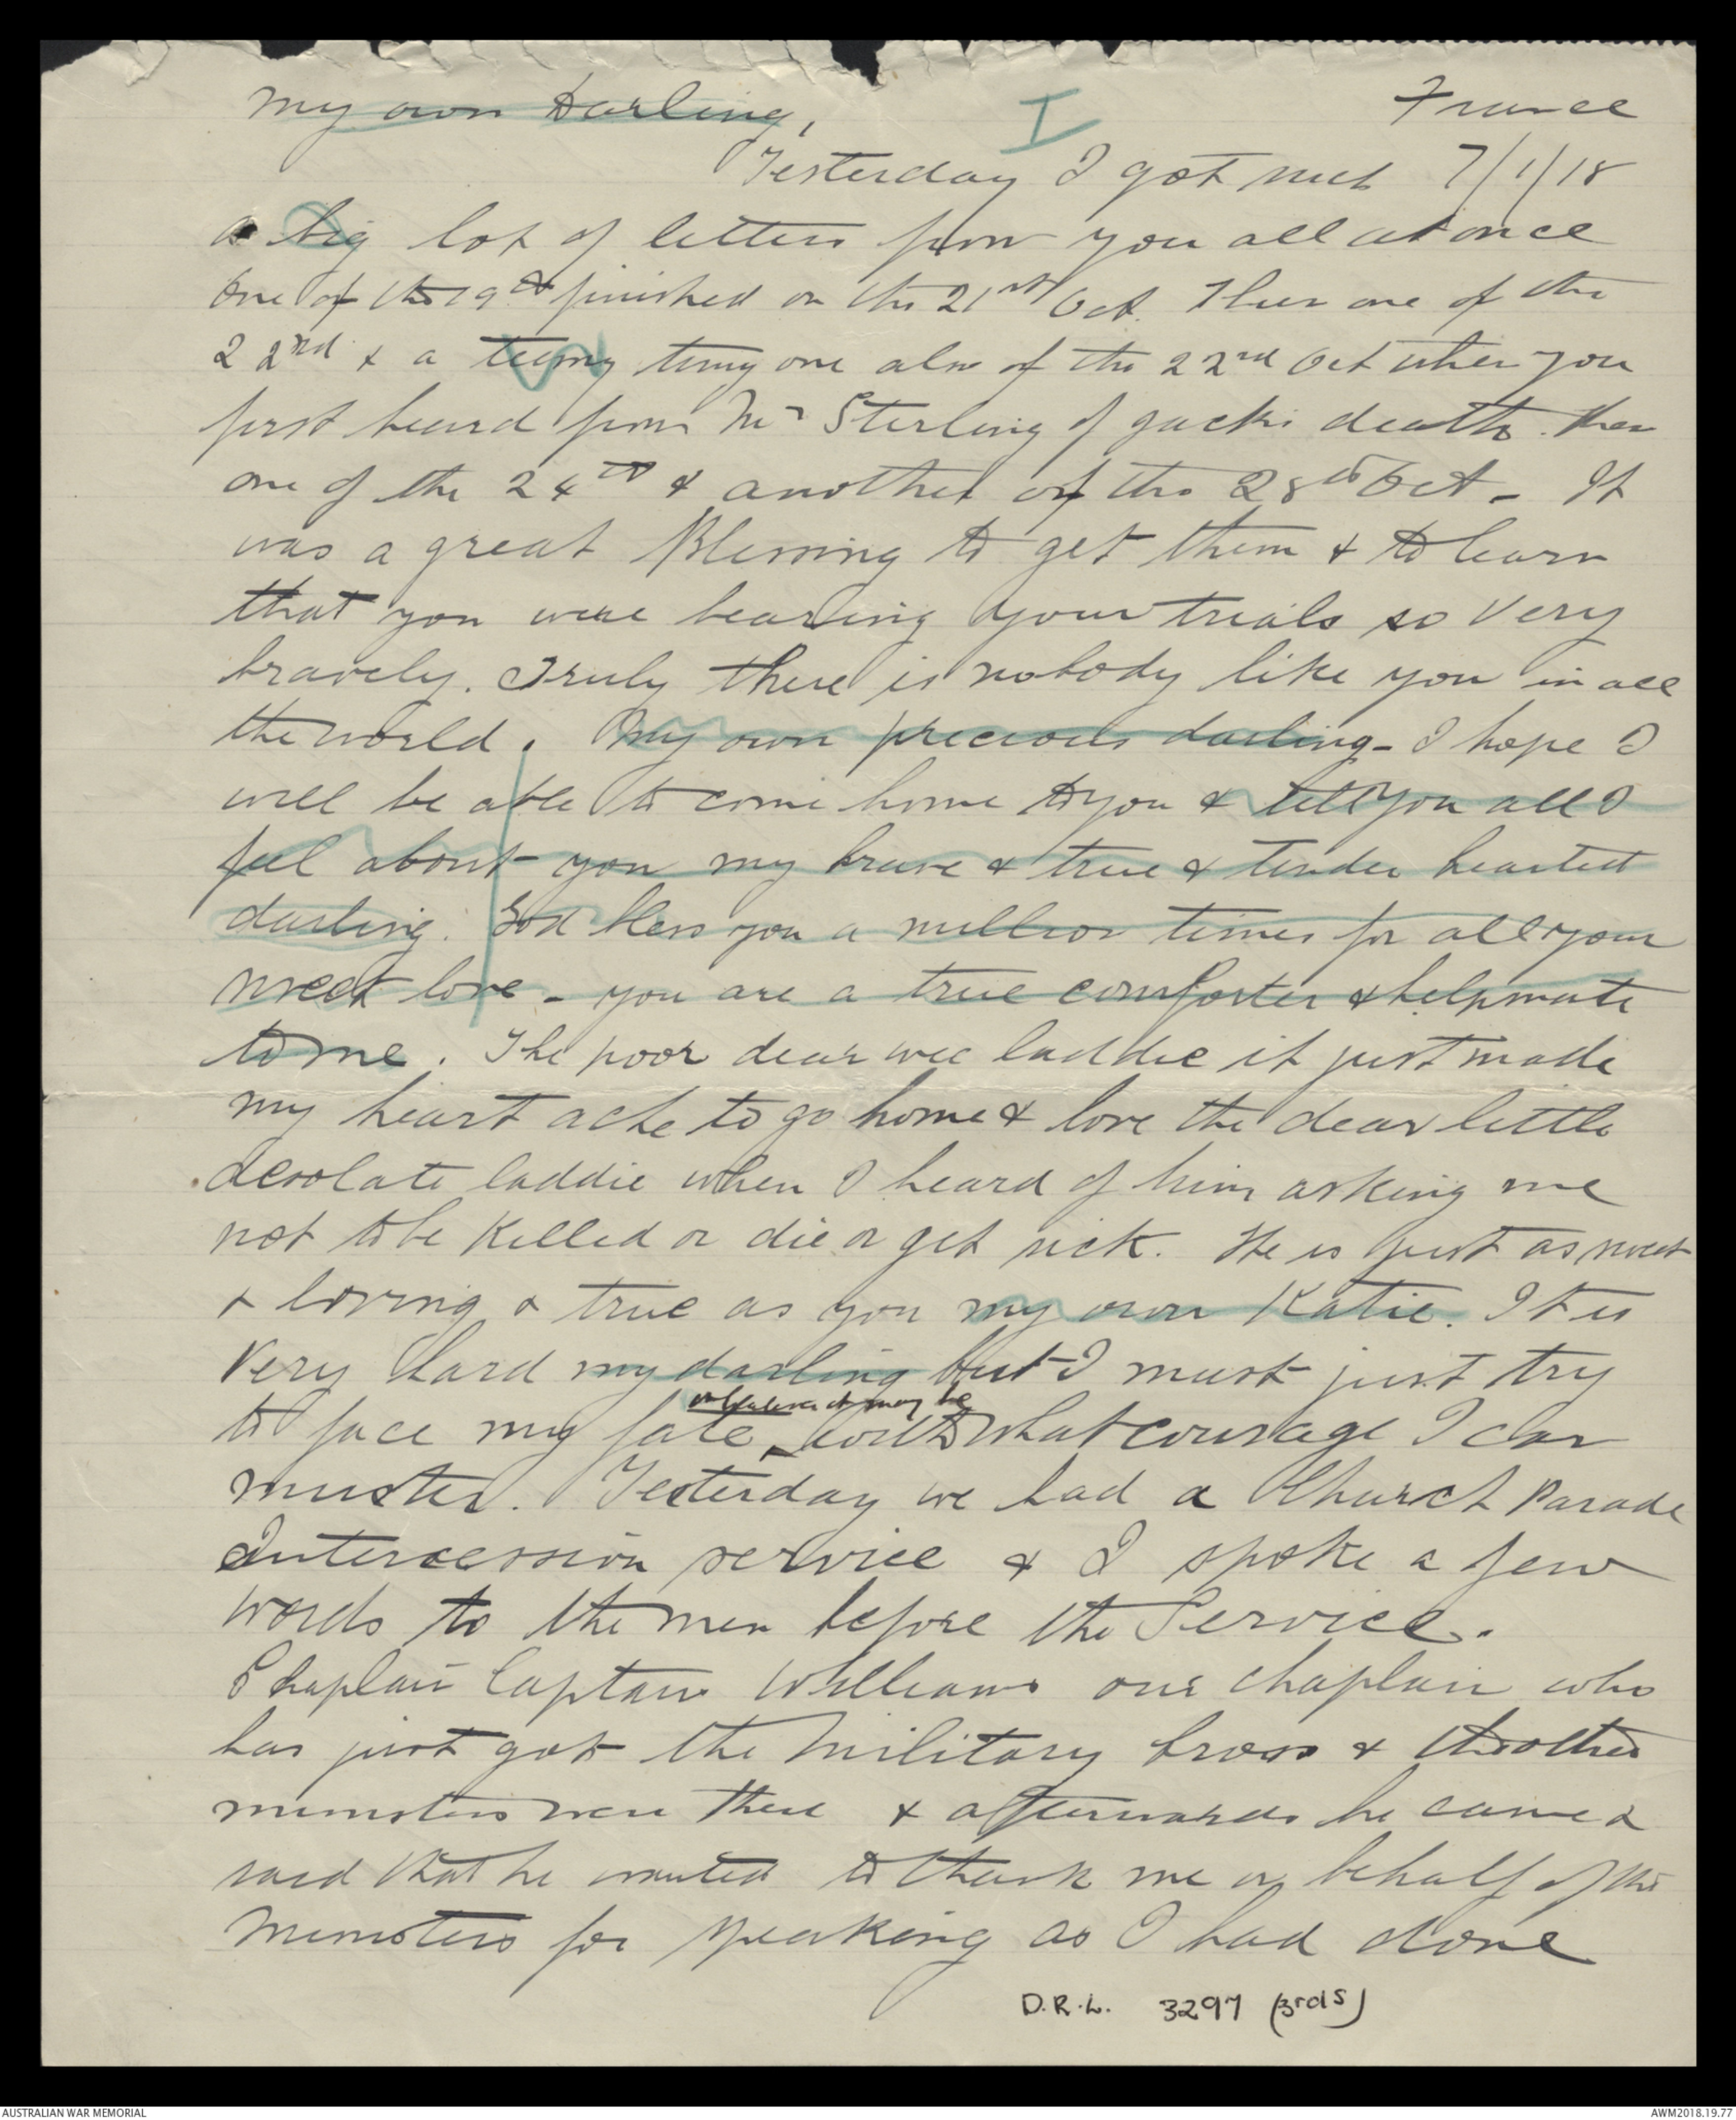 My own Darling,
I
France
Yesterday I got such 7/1/18
a big lot of letters from you all at once
One of the 19th finished on the 21st Oct. Then one of the
22nd & a teeny teeny one also of the 22nd Oct when you
first heard from Mr Sterling of Jacks death. Then
one of the 24th & another of the 28th Oct - It
was a great Blessing to get them & to learn
that you were bearing your trials so very
bravely. Truly there is nobody like you in all
the world. My own precious darling - I hope I
will be able to come home to you & tell you all I
feel about you my brave & true & tender hearted
darling. God bless you a million times for all your
sweet love - you are a true comforter & helpmate
to me. The poor dear wee laddie it just made
my heart ache to go home & love the dear little
desolate laddie when I heard of him asking me
not to be killed or die or get sick. He is just as sweet
& loving & true as you my own Katie. It is
very hard my darling but I must just try
whatever it may be
to face my fate with what courage I can
muster. Yesterday we had a Church Parade
Intercession service & I spoke a few
words to the men before the Service.
Chaplain Captain Williams our chaplain who
has just got the Military Cross & the other
ministers were there & afterwards he came &
said that he wanted to thank me on behalf of the
Ministers for speaking as I had done
D.R.L. 3297 (3rd S)
AUSTRALIAN WAR MEMORIAL
AWM2018.19.77